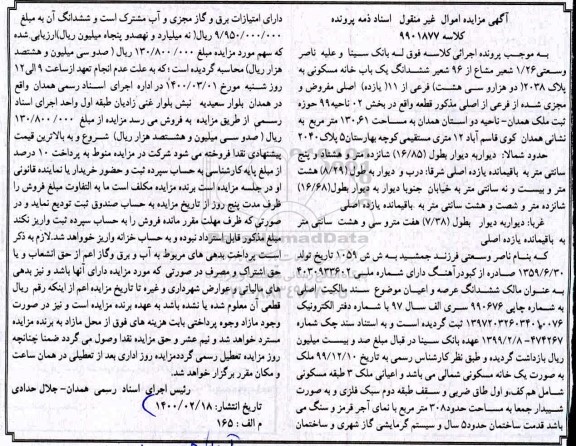 آگهی مزایده اموال غیر منقول اسناد ذمه پرونده
کلاسه ۹۹۰۱۸۷۷
به موجب پرونده اجرائی کلاسه فوق له بانک سینا و علیه ناصر
وسعتی ۱/۲۶ شعیر مشاع از ۹۶ شعیر ششدانگ یک باب خانه مسکونی به
پلاک ۲۰۳۸ (دو هزارو سی وهشت) فرعی از ۱۱ (یازده) اصلی مفروض و
مجزی شده از فرعی از اصلی مذکور قطعه واقع در بخش ۰۲ ناحیه ۹۹ حوزه
ثبت ملک همدان- ناحیه دو استان همدان به مساحت ۱۳۰.۶۱ متر مربع به
نشانی همدان کوی قاسم آباد ۱۲ متری مستقیمی کوچه بهارستان۵ پلاک ۲۰۴۰
حدود: شمالا: دیواربه دیوار بطول (۱۶/۸۵) شانزده متر و هشتاد و پنج
سانتی متر به باقیمانده یازده اصلی شرقا: درب و دیوار به طول (۸/۲۹) هشت
متر و بیست و نه سانتی متر به خیابان جنوبا دیوار به دیوار بطول (۱۶/۶۸)
شانزده متر و شصت و هشت سانتی متر به باقیمانده یازده اصلی
غربا: دیواربه دیوار بطول (۷/۳۸) هفت مترو سی و هشت سانتی متر
به باقیمانده یازده اصلی
که بنام ناصر وسعتی فرزند جمشید به ش ش ۱۰۵۹ تاریخ تولد
۱۳۵۹/۶/۳۰ صادره از کبودرآهنگ دارای شماره ملی ۴۰۳۰۹۳۳۶۰۲
به عنوان مالک ششدانگ عرصه و اعیان موضوع سند مالکیت اصلی
به شماره چاپی ۹۹۰۶۷۶ سری الف سال ۹۷ با شماره دفتر الکترونیک
۱۳۹۷۲۰۳۲۶۰۳۴۰۱۰۰۷۶ ثبت گردیده است و به استناد سند چک شماره
۴۷۴۲۶۷-۱۳۹۹/۲/۸ عهده بانک سینا در قبال مبلغ صد و بیست میلیون
ریال بازداشت گردیده و طبق نظر کارشناس رسمی به تاریخ ۹۹/۱۲/۱۰ ملک
به صورت یک خانه مسکونی شمالی می باشد و اعیانی ملک ۳ طبقه مسکونی
شامل هم کف،و اول طاق ضربی و سقف طبقه دوم سبک فلزی و به صورت
شیبدار جمعا به مساحت حدود۳۰۸ متر مربع با نمای آجر قرمز و سنگ می
باشد قدمت ساختمان حدود۵ سال و سیستم گرمایشی گاز شهری و ساختمان
دارای امتیازات برق و گاز مجزی و آب مشترک است و ششدانگ آن به مبلغ
۹/۹۵۰/۰۰۰/۰۰۰ ریال( نه میلیارد و نهصدو پنجاه میلیون ریال)ارزیابی شده
که سهم مورد مزایده مبلغ ۱۳۰/۸۰۰/۰۰۰ ریال ( صدو سی میلیون و هشتصد
هزار ریال) محاسبه گردیده است ؛که به علت عدم انجام تعهد ازساعت ۹ الی۱۲
روز شنبه مورخ ۱۴۰۰/۰۳/۰۱ در اداره اجرای اسناد رسمی همدان واقع
در همدان بلوار سعیدیه نبش بلوار غنی زادیان طبقه اول واحد اجرای اسناد
رسمی از طریق مزایده به فروش می رسد مزایده از مبلغ ۱۳۰/۸۰۰/۰۰۰
ریال ( صدو سی میلیون و هشتصد هزار ریال) شروع و به بالاترین قیمت
پیشنهادی نقدا فروخته می شود شرکت در مزایده منوط به پرداخت ۱۰ درصد
از مبلغ پایه کارشناسی به حساب سپرده ثبت و حضور خریدار یا نماینده قانونی
او در جلسه مزایده است برنده مزایده مکلف است ما به التفاوت مبلغ فروش را
ظرف مدت پنج روز از تاریخ مزایده به حساب صندوق ثبت تودیع نماید و در
صورتی که ظرف مهلت مقرر مانده فروش را به حساب سپرده ثبت واریز نکند
مبلغ مذکور قابل استرداد نبوده و به حساب خزانه واریز خواهد شد.لازم به ذکر
است پرداخت بدهی های مربوط به آب و برق وگاز اعم از حق انشعاب و یا
حق اشتراک و مصرف در صورتی که مورد مزایده دارای آنها باشد و نیز بدهی
های مالیاتی و عوارض شهرداری و غیره تا تاریخ مزایده اعم از اینکه رقم ریال
قطعی آن معلوم شده یا نشده باشد به عهده برنده مزایده است و نیز در صورت
وجود مازاد وجوه پرداختی بابت هزینه های فوق از محل مازاد به برنده مزایده
مسترد خواهد شد و نیم عشر و حق مزایده نقدا وصول می گردد ضمنا چنانچه
روز مزایده تعطیل رسمی گرددمزایده روز اداری بعد از تعطیلی در همان ساعت
و مکان مقرر برگزار خواهد شد.
رئیس اجرای اسناد رسمی همدان- جلال حدادی
تاریخ انتشار: ۱۴۰۰/۰۲/۱۸
م الف : ۱۶۵